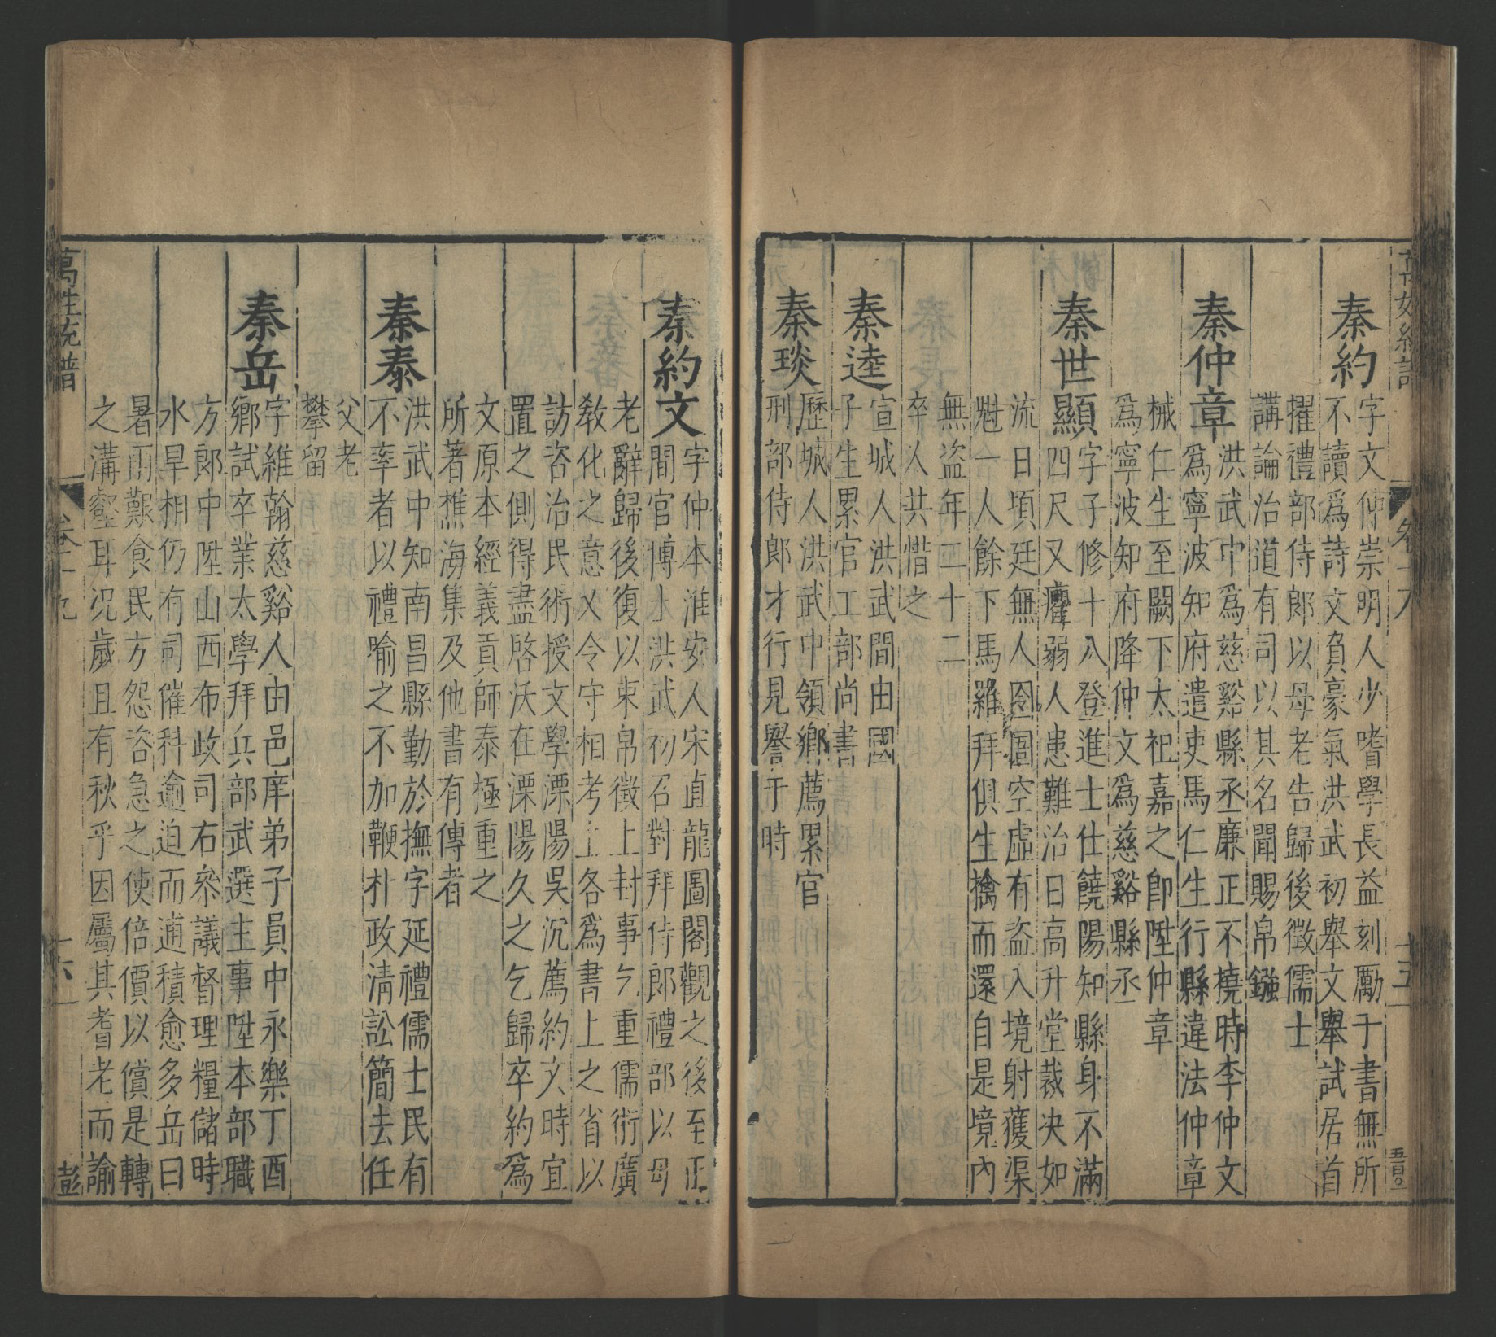 秦約字文仲崇明人少嗜學長益刻勵于書無所
不讀爲詩文負豪氣洪武初舉文舉試居首
擢禮部侍郎以母老告歸後徵儒士
講論治道有司以其名聞賜帛鏹
秦仲章洪武中爲慈谿縣丞廉正不撓時李仲文
爲寧波知府遣吏馬仁生行縣違法仲章
械仁生至闕下太祀嘉之卽陞仲章
爲寧波知府降仲文爲慈谿縣丞
秦世顯字子修十八登進士仕饒陽知縣身不滿
四尺又癯弱人患難治日高升堂裁決如
流日頃廷無人囹圄空虛有盗入境射獲渠
魁一人餘下馬羅拜俱生擒而還自是境內
無盗年二十二
卒人共惜之
秦逵宣城人洪武間由國
子生累官工部尚書
秦琰歷城人洪武中領鄉薦累官
刑部侍郎才行見譽于時
秦約文字仲本淮安人宋直龍圖閣觀之後至正
間官博士洪武初召對拜侍郎禮部以母
老辭歸後復以束帛徵上封事乞重儒術廣
敎化之意又令守相考上各爲書上之省以
訪咨治民術授文學溧陽吳沉薦約文時宜
置之側得盡啓沃在溧陽久之乞歸卒約爲
文原本經義貢師泰極重之
所著樵海集及他書有傳者
秦泰洪武中知南昌縣勤於撫字延禮儒士民有
不率者以禮喻之不加鞭朴政淸訟簡去任
父老
攀留
秦岳字維翰慈谿人由邑庠弟子員中永樂丁酉
鄉試卒業太學拜兵部武選主事陞本部職
方郎中陞山西布政司右叅議督理糧儲時
水旱相仍有司催科逾迫而逋積愈多岳曰
暑雨艱食民方怨咨急之使倍價以償是轉
之溝壑耳况歲且有秋乎因屬其耆老而諭
萬姓統譜 卷十九 十六 彭